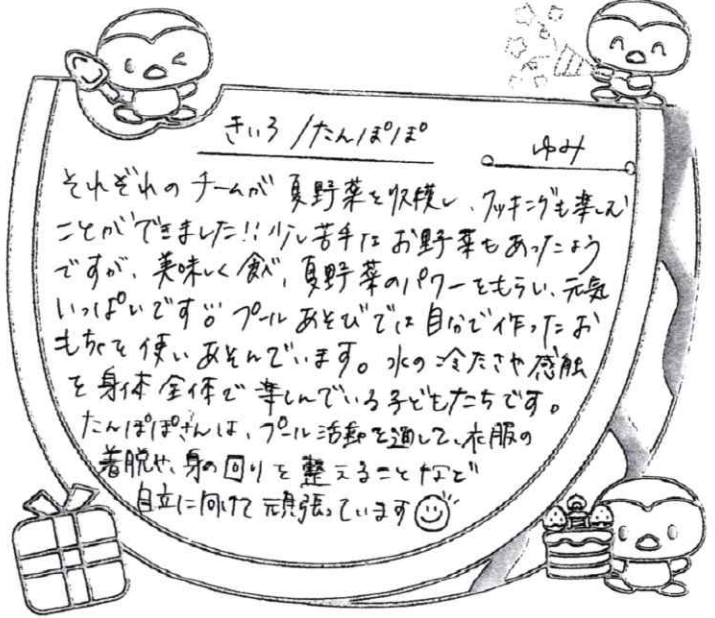 きいろ/たんぽぽ
ゆみ
それぞれのチームが夏野菜を収穫し、クッキングも楽しむ
ことができました!!少し苦手なお野菜もあったよう
ですが、美味しく食べ、夏野菜のパワーをもらい、元気
いっぱいです。プールあそびでは自分で作ったお
もちゃを使いあそんでいます。水の冷たさや感触
を身体全体で楽しんでいる子どもたちです。
たんぽぽさんは、プール活動を通して、衣服の
着脱や、身の回りを整えることなど
自立に向けて頑張っています